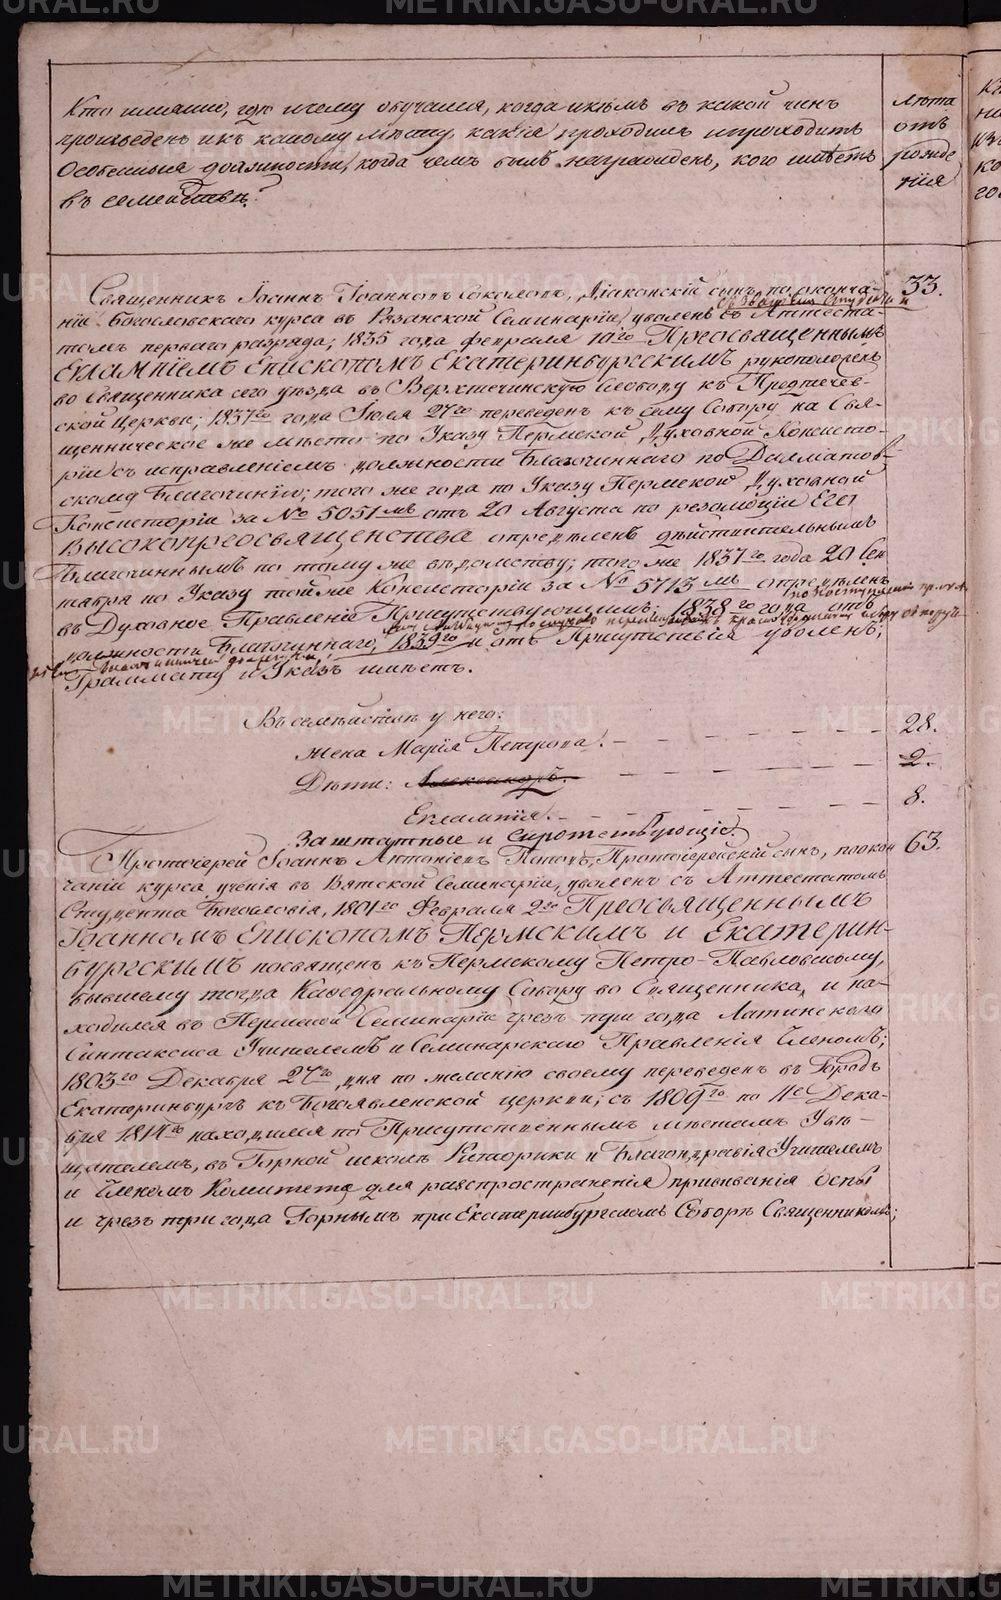 Кто именно, где и чему обучался, когда и кѣмъ въ какой чинъ
произведенъ и къ какому мѣсту, какія проходилъ и проходитъ
Особенныя должности, когда чемъ былъ награжденъ, кого имѣетъ
въ семействѣ?
Лѣта
отъ
рожде
нія
Священникъ Іоаннъ Іоанновъ Соколовъ, Діаконскій сынъ, по оконча-
33.
ніи Богословскаго курса въ Рязанской Семинаріи, уволенъ съ Аттеста-
томъ перваго разряда; 1835 года февраля 10го Преосвященнымъ
Евлампіемъ Епископомъ Екатеринбургскимъ рукоположенъ
во Священника сего уѣзда въ Верхтечинскую Слободу къ Предтечев-
ской Церкви; 1837го года Іюля 27го переведенъ къ сему Собору на Свя-
щенническое же мѣсто по Указу Пермской Духовной Консисто-
ріи съ исправленіемъ должности Благочиннаго по Далматов-
скому Благочинію; того же года по Указу Пермской Духовной
Консисторіи за № 5051мъ отъ 20 Августа по резолюціи Его
Высокопреосвященства опредѣленъ дѣйствительнымъ
Благочиннымъ по тому же вѣдомству; того же 1837го года 20 Сен
тября по Указу той же Консисторіи за № 5713мъ опредѣленъ
въ Духовное Правленіе Присутствующимъ; 1838го года отъ
должности Благочиннаго, 1839го и отъ Присутствія уволенъ;
Граммату и Указъ имѣетъ.
Въ семействѣ у него:
жена Марія Петрова. 28.
Дѣти: Александръ. 2.
Евлампія. 8.
Заштатные и сиротствующіе.
Протоіерей Іоаннъ Антоніевъ Поповъ, Протоіерейскій сынъ, по окон
63.
чаніи курса ученія въ Вятской Семинаріи, уволенъ съ Аттестатомъ
Студента Богословія, 1801го Февраля 2го Преосвященнымъ
Іоанномъ Епископомъ Пермскимъ и Екатерин-
бургскимъ посвященъ къ Пермскому Петро-Павловскому,
бывшему тогда Кафедральному Собору во Священника, и на-
ходился въ Пермской Семинаріи чрезъ три года Латинскаго
Синтаксиса Учителемъ и Семинарскаго Правленія Членомъ;
1803го Декабря 27го дня по желанію своему переведенъ въ Городъ
Екатеринбургъ къ Богоявленской церкви; съ 1809го по 11е Дека-
бря 1814го находился по Присутственнымъ мѣстамъ Увѣ-
щателемъ, въ Горной школѣ Риторики и Благонравія Учителемъ
и Членомъ Комитета для распространенія прививанія оспы
и чрезъ три года Горнымъ при Екатеринбургскомъ Соборѣ Священникомъ;